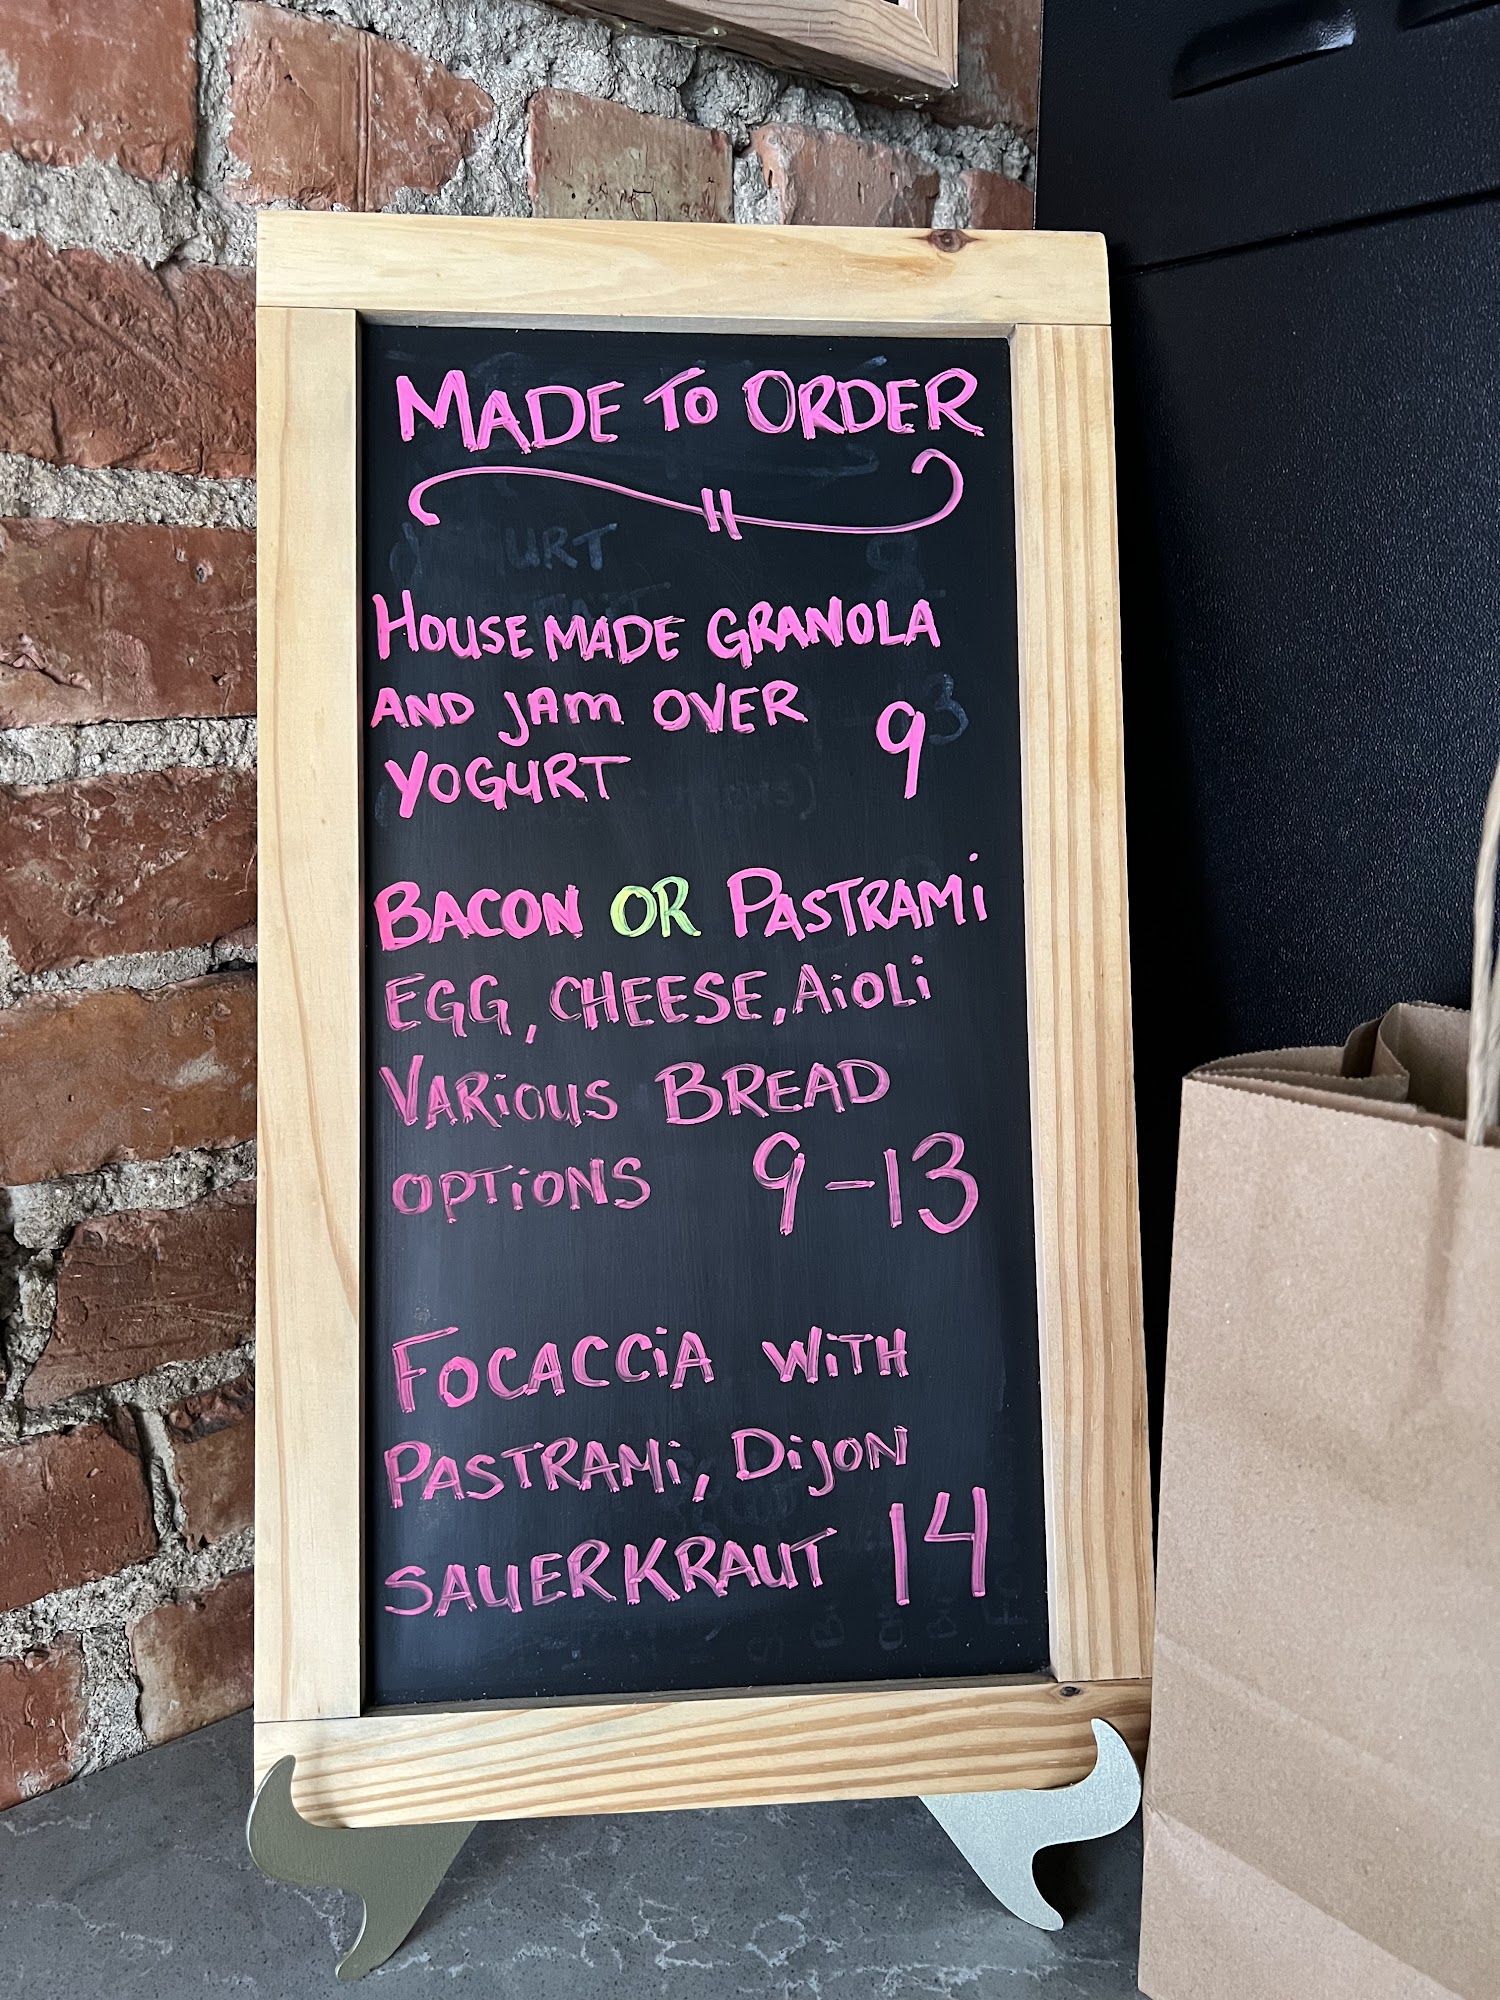 MADE TO ORDER
HOUSE MADE GRANOLA
AND JAM OVER
YOGURT 9
BACON OR PASTRAMI
EGG, CHEESE, AIOLI
VARIOUS BREAD
OPTIONS 9-13
FOCACCIA WITH
PASTRAMI, DIJON
SAUERKRAUT 14